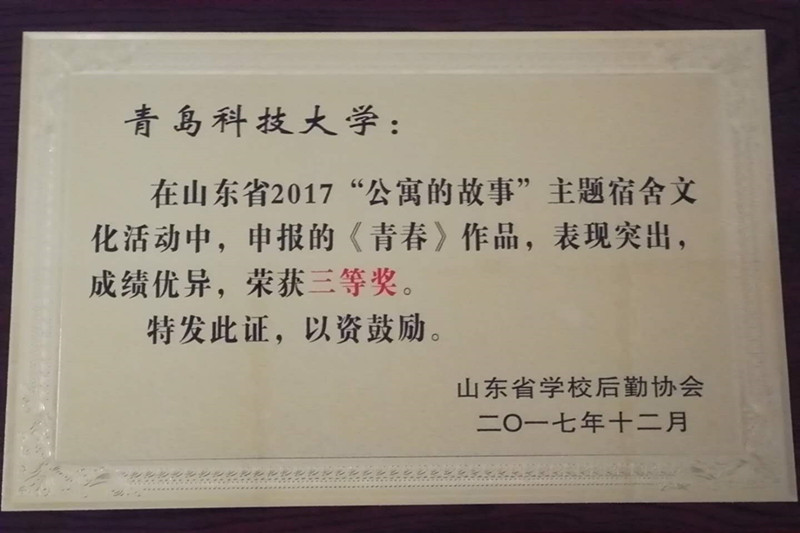 青岛科技大学：
在山东省2017“公寓的故事”主题宿舍文
化活动中，申报的《青春》作品，表现突出，
成绩优异，荣获三等奖。
特发此证，以资鼓励。
山东省学校后勤协会
二〇一七年十二月